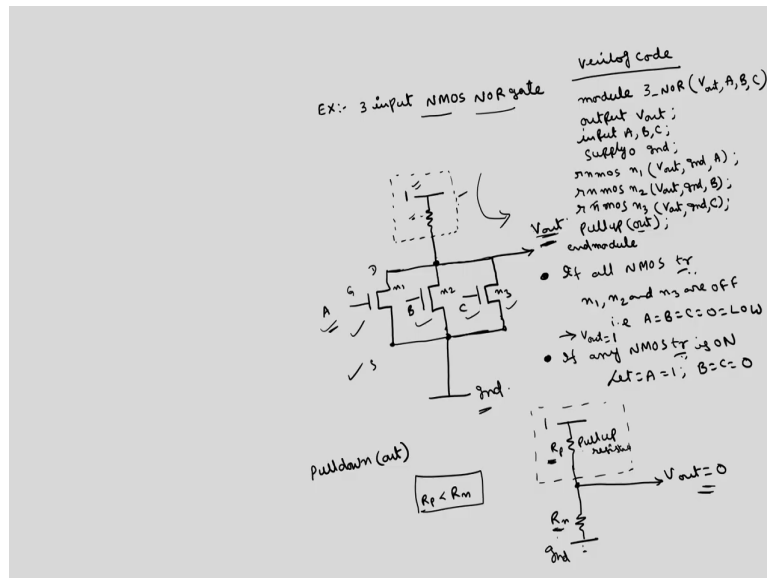 Verilog code
EX:- 3 input NMOS NOR gate
module 3_NOR (Vout, A, B, C)
output Vout;
input A, B, C;
supply0 gnd;
rnmos n1 (Vout, gnd, A);
rnmos n2 (Vout, gnd, B);
rnmos n3 (Vout, gnd, C);
pullup (out);
endmodule
1
Vout
D
G
n1
n2
n3
A
B
C
S
gnd.
• If all NMOS tr
n1, n2 and n3 are OFF
i.e A=B=C=0=LOW
→ Vout=1
• If any NMOS tr is ON
Let=A=1; B=C=0
1
Rp
pullup
resistor
Vout=0
Rn
gnd
pulldown (out)
Rp < Rn